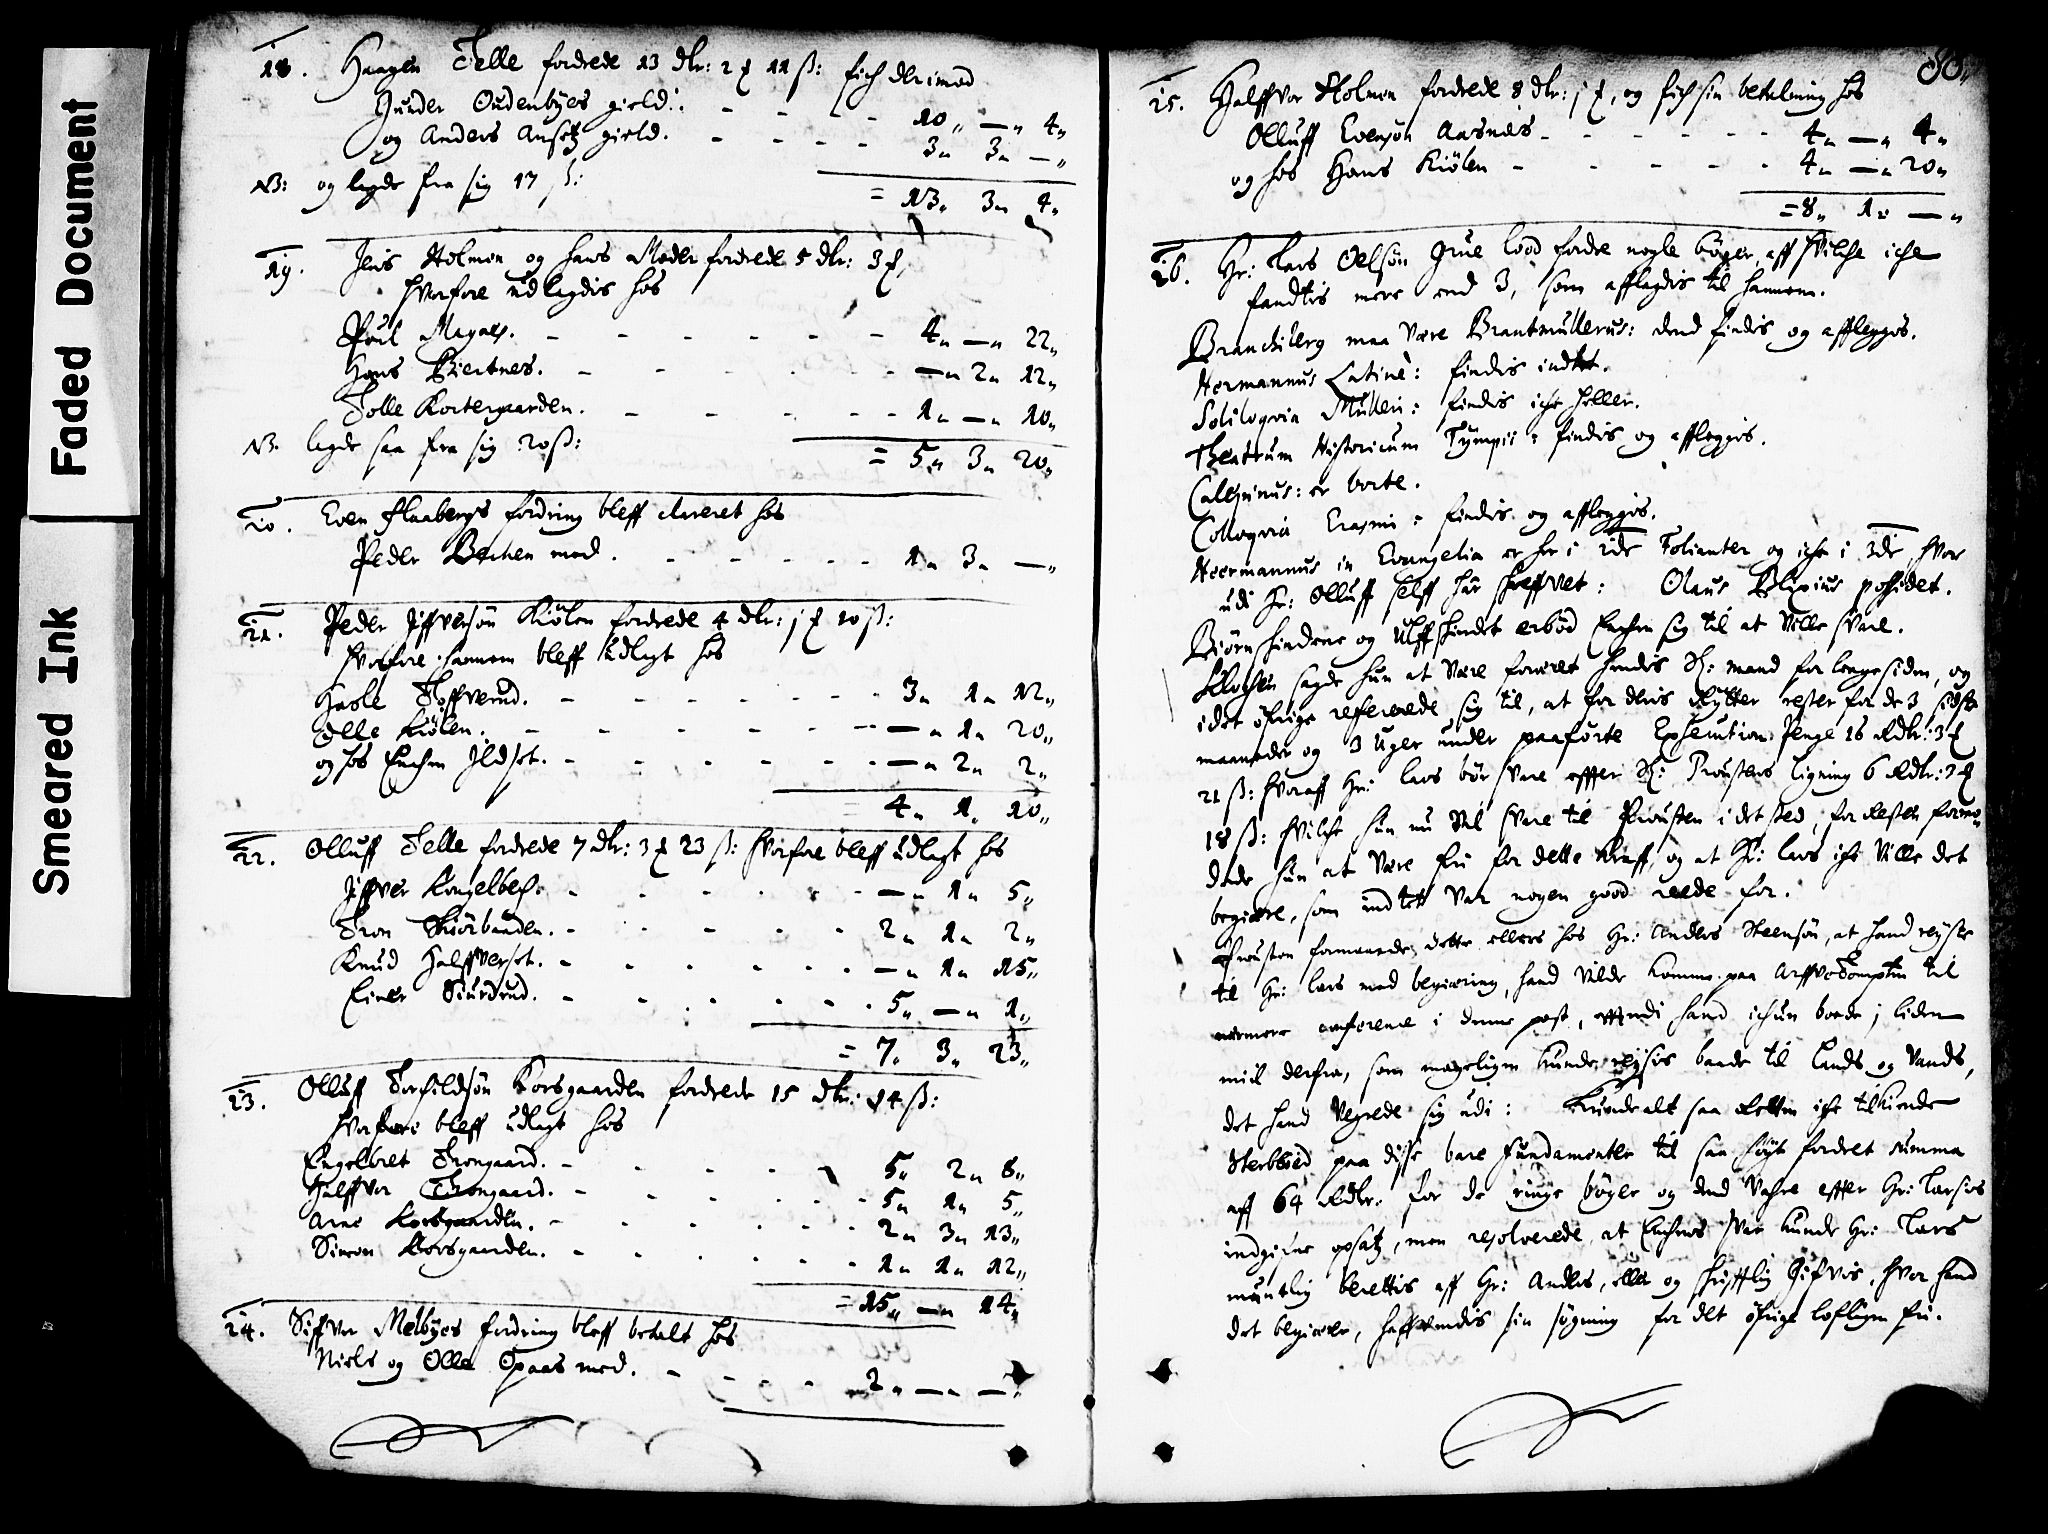 Faded Document
Smeared Ink
18. Haagen Telle fordrede 13 dlr: 2 ß 11 ß: fich der imod
Gunder Oudenbyes gield: - - - - 10„ —„ 4„
og Anders gield. - - - - 3„ 3„ —„
NB: og lagde fra sig 17 ß: = 13„ 3„ 4„
19. Jens Holmen og hans Moder fordrede 5 dlr: 3
hvorfore udlagdis hos
Poul - - - - - - 4„ —„ 22„
Hans Biertnes. - - - - - —„ 2„ 12„
Tolle Kortergaarden. - - - - - 1„ —„ 10„
NB. lagde saa fra sig 20 ß: = 5„ 3„ 20„
20. Even Flaabergs fordring bleff clareret hos
Peder Bechen med. - - - - - - 1„ 3„ —„
21. Peder Jffversøn Kiølen fordrede 4 dlr: j 10 ß:
hvorfore hannem bleff udlagt hos
- - - - - - 3„ 1„ 12„
Olle Kiølen. - - - - - —„ 1„ 20„
og hos Enchen Jldset. - - - - - —„ 2„ 2„
4„ 1„ 10„
22. Olluff Telle fordrede 7 dlr: 3 23 ß: hvorfore bleff udlagt hos
Jffver Kongelbech. - - - - - —„ 1„ 5„
Tron - - - - - 2„ 1„ 2„
Knud Halffverset. - - - - - —„ 1„ 15„
Einer Siurdrud. - - - - - 5„ —„ 1„
= 7„ 3„ 23„
23. Olluff Torkildsøn Korsgaarden fordrede 15 dlr: 14 ß:
hvorfore bleff udlagt hos
Engelbret Trongaard. - - - - 5„ 2„ 8„
Halffvor Trongaard. - - - - - 5„ 1„ 5„
Arne Korsgaarden. - - - - - 2„ 3„ 13„
Simon Korsgaarden. - - - - - 1„ 1„ 12„
= 15„ —„ 14„
24. Siffver Melbyes fordring bleff betalt hos
Niels og Olle Opaas med. - - - - 2„ —„ —„
80„
25. Halffvor Holmen fordrede 8 dlr: j, og fich sin betalning hos
Olluff Evensøn Aasnæs - - - - - - 4„ —„ 4„
og hos Hans Kiølen - - - - - 4„ —„ 20„
= 8„ 1„ —„
26. Hr: Lars Oelsøn Grue lood fordre nogle bøger, aff hvilche iche
fandtis mere end 3, som afflagdis til hannem.
maa være Brantmullerus: dend findis og afflegges.
Hermannus Latine: findis indtet.
Soliloqvia Mulleri: findis iche heller.
Theatrum Historicum Tympii: findis og afflegges.
Calepinus: er borte.
Colloqvia Erasmi: findis og afflegges.
Heermannus in Evangelia er her i 2de Folianter og iche i 3de, hvor
udi Hr: Olluff self har skreffvet: Olaus possidet.
Biørnskindene og Ulffskindet erbød Enchen sig til at ville svare.
Klochen sagde hun at være foræret hendis Sl: mand for lenge siden, og
i det øfrige refererede sig til, at for deris Rytter rester for de 3 sidste
maaneder og 3 Uger under paaførte Exsecution Penge 16 Rdlr: 3
21 ß: hvoraff Hr: Lars bør svare effter Sl: Proustens ligning 6 Rdlr: 2
18 ß: hvilche hun nu vil svare til Prousten i det sted, for resten formo-
dede hun at være fri for dette kraff, og at Hr: Lars iche ville det
begiære, som indtet var nogen good reede for.
Prousten formanede dette ellers hos Hr: Anders Steensøn, at hand reyste
til Hr: Lars med begiæring, hand vilde komme paa Arffvetompten til
nærmere conference i denne post, efftterdi hand ichun boede j liden
miil derfra, som mageligen kunde reysis baade til Lands og Vands,
det hand vegrede sig udi: Kunde alt saa Retten iche tilkiende
Sterbboed paa disse bare fundamenter til saa høyt fordret summa
aff 64 Rdlr: for de ringe bøger og dend Vahre effter Hr: Larsis
indgifne opsatz, men resolverede, at Enchens svar kunde Hr: Lars
mundtlig berettis aff Hr: Anders, eller og skrifftlig gifves, hvor hand
det begiærer, haffvendis sin søgning for det øfrige lofligen fri.